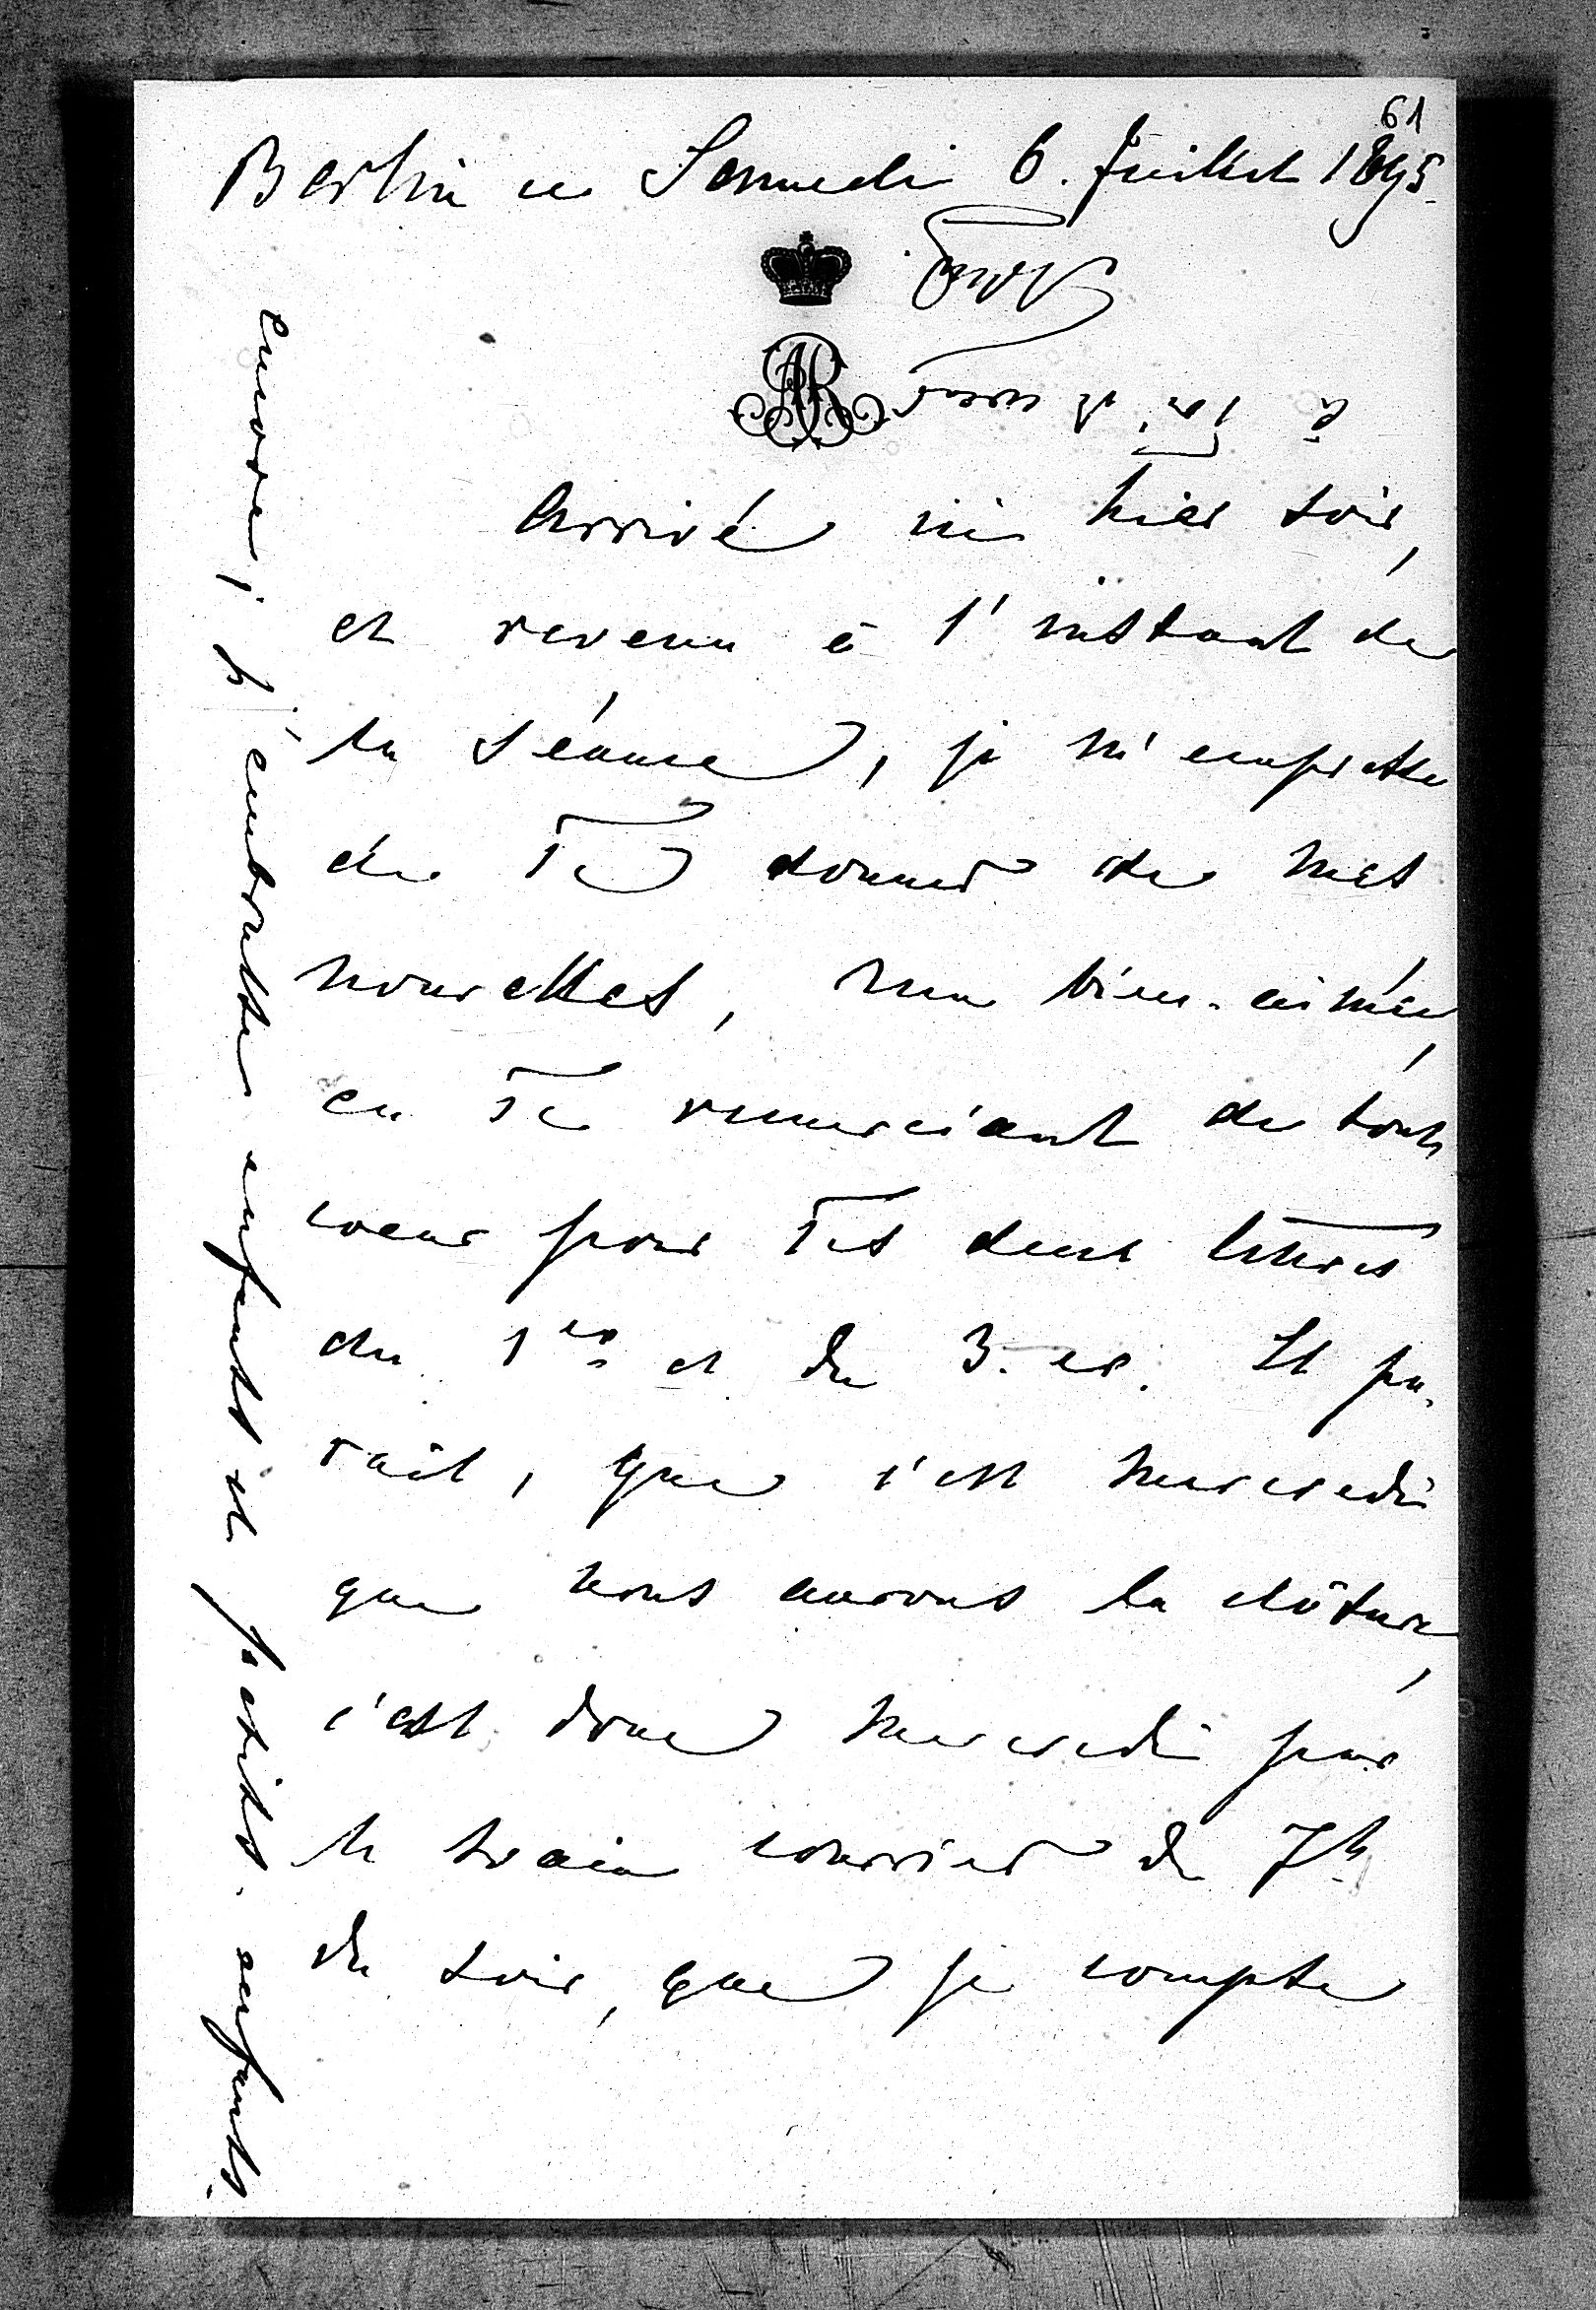 61
Berlin ce Samedi 6. Juillet 1895.
AR
Arrivé ici hier soir,
et revenu à l'instant de
la séance, je m'empresse
de Te donner de mes
nouvelles, ma bien-aimée,
en Te remerciant de tout
coeur pour Tes deux lettres
du 1er et du 3. cr. Il pa-
rait, que c'est mercredi
que nous aurons la clôture,
c'est donc mercredi par
le train courrier de 7h
du soir, que je compte
encore; j'embrasse enfants et petits-enfants.